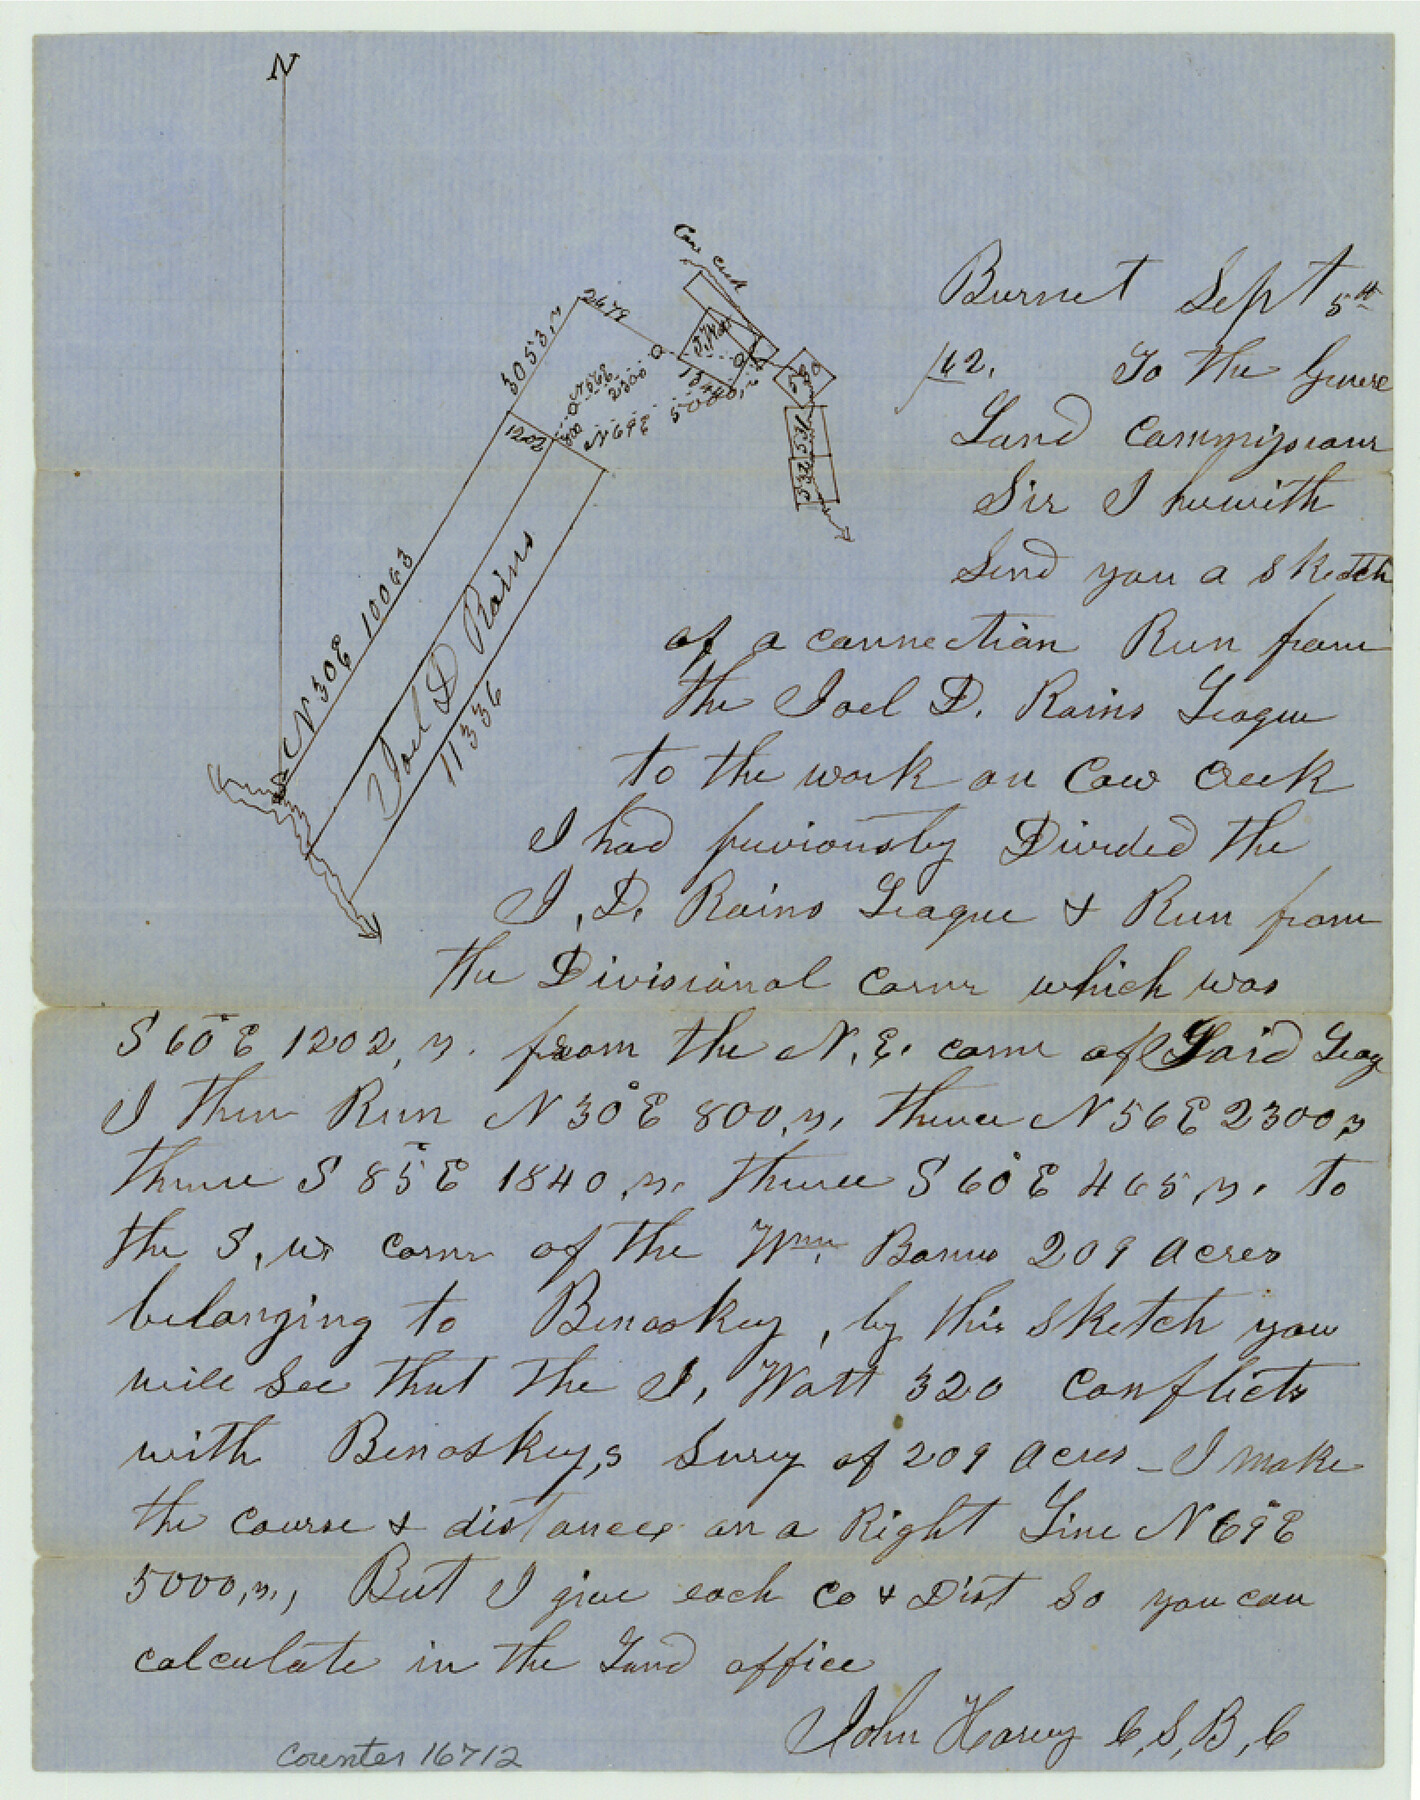 N
Cow creek
2678
3053,v
J. Watt
1344
N56E
2300
800
N69E 5000,v
1202
320
N30E 10063
Joel D Rains
11336
Burnet Sept 5th
/62. To the Genrel
Land Commissioner
Sir I herewith
Send you a sketch
of a connection Run from
the Joel D. Rains League
to the work on Cow Creek
I had previously Divided the
J. D. Rains League & Run from
the Divisional corner which was
S 60° E 1202, v. from the N. E. corner of Said Leag
I then Run N 30° E 800,v, thence N 56 E 2300,v
thence S 85° E 1840,v. thence S 60° E 465,v. to
the S,w corner of the Wm. 209 acres
belonging to Benoskey, by this sketch you
will see that the J, Watt 320 conflicts
with Benoskey,s Survy of 209 acres - I make
the course & distance on a Right Line N 69° E
5000,v., But I give each co & Dist so you can
calculate in the Land office
John Harvey C,S,B,C
counter 16712